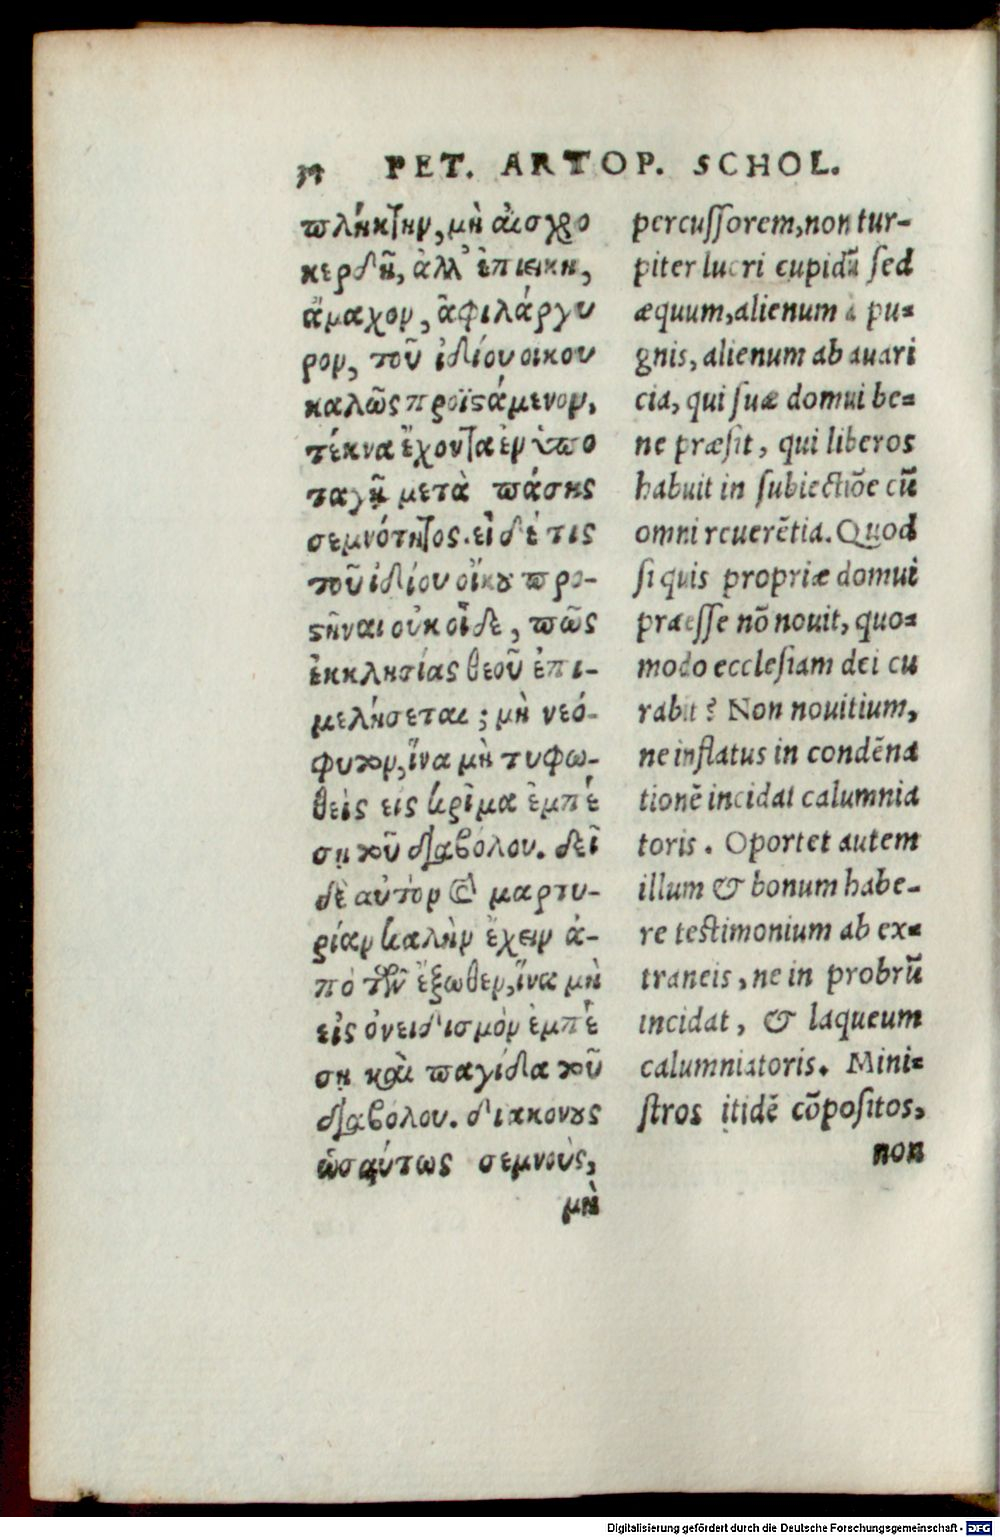 PET. ARTOP. SCHOL.
πλήκτην, μὴ αἰσχρο
κερδῆ, ἀλλ' ἐπιεικη,
ἄμαχον, ἀφιλάργυ
ρον, τοῦ ἰδίου οικου
καλῶς προϊστάμενον,
τέκνα ἔχοντα ἐν ὑπο
ταγῇ μετὰ πάσης
σεμνότητος. εἰ δέ τις
τοῦ ἰδίου οἴκου προ-
στῆναι οὐκ οἶδε, πῶς
ἐκκλησίας θεοῦ ἐπι-
μελήσεται; μὴ νεό-
φυτον, ἵνα μὴ τυφω-
θεὶς εἰς κρῖμα ἐμπέ
σῃ τοῦ διαβόλου. δεῖ
δὲ αὐτὸν καὶ μαρτυ-
ρίαν καλὴν ἔχειν ἀ-
πὸ τῶν ἔξωθεν, ἵνα μὴ
εἰς ὀνειδισμὸν ἐμπέ
σῃ καὶ παγίδα τοῦ
διαβόλου. διακονους
ὡσαύτως σεμνοὺς,
μὴ
percussorem, non tur-
piter lucri cupidū sed
æquum, alienum à pu-
gnis, alienum ab auari
cia, qui suæ domui be-
ne præsit, qui liberos
habuit in subiectiōe cū
omni reuerētia. Quod
si quis propriæ domui
praeesse nō nouit, quo-
modo ecclesiam dei cu
rabit? Non nouitium,
ne inflatus in condēna
tionē incidat calumnia
toris. Oportet autem
illum & bonum habe-
re testimonium ab ex-
traneis, ne in probrū
incidat, & laqueum
calumniatoris. Mini-
stros itidē cōpositos,
non
Digitalisierung gefördert durch die Deutsche Forschungsgemeinschaft - DFG